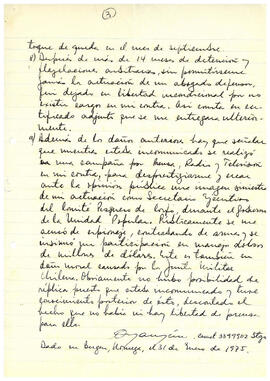 ③
toque de queda en el mes de septiembre.
8) Después de más de 14 meses de detención y
flagelaciones arbitrarias, sin permitírseme
jamás la actuación de un abogado defensor,
fui dejado en libertad incondicional por no
existir cargos en mi contra. Así consta en cer-
tificado adjunto que se me entregara ulterior-
mente.
9) Además de los daños anteriores hay que señalar
que mientras estaba incomunicado se realizó
una campaña por Prensa, Radio y Televisión
en mi contra, para desprestigiarme y crear
ante la opinión pública una imagen siniestra
de mi actuación como Secretario Ejecutivo
del Comité Asesor de la, durante el gobierno
de la Unidad Popular. Públicamente se me
acusó de espionaje, contrabando de armas y se
insinuó mi participación en manejo doloso
de millones de dólares. Este es también un
daño moral causado por la Junta Militar
Chilena. Obviamente no hubo posibilidad de
réplica puesto que estaba incomunicado y tuve
conocimiento posterior de ésto, descontado el
hecho que no había ni hay libertad de prensa
para ello.
Carnet 3399902 Stgo
Dado en Bergen, Noruega, el 31 de Enero de 1975.